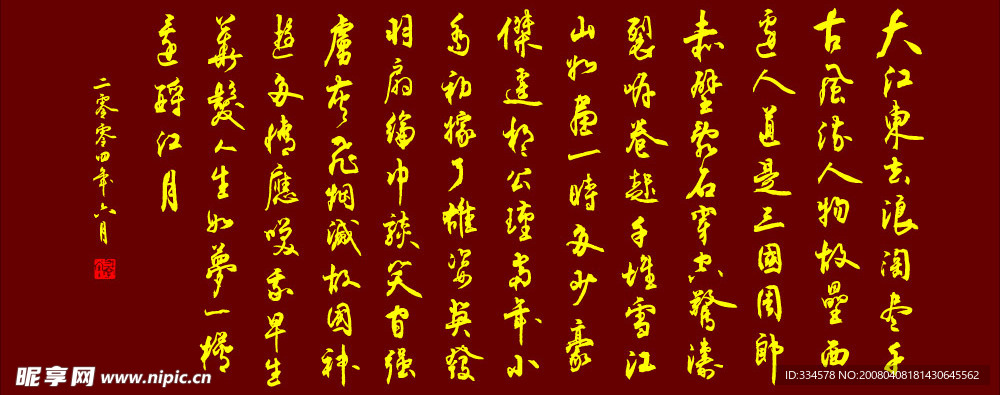 大江東去浪淘尽千
古風流人物故壘西
邊人道是三國周郎
赤壁亂石穿空驚濤
裂岸卷起千堆雪江
山如畫一時多少豪
傑遥想公瑾當年小
喬初嫁了雄姿英發
羽扇綸巾談笑间强
虜灰飛烟滅故國神
遊多情應笑我早生
華髮人生如夢一樽
還酹江月
二零零四年六月
昵享网 www.nipic.cn
ID:334578 NO:20080408181430645562